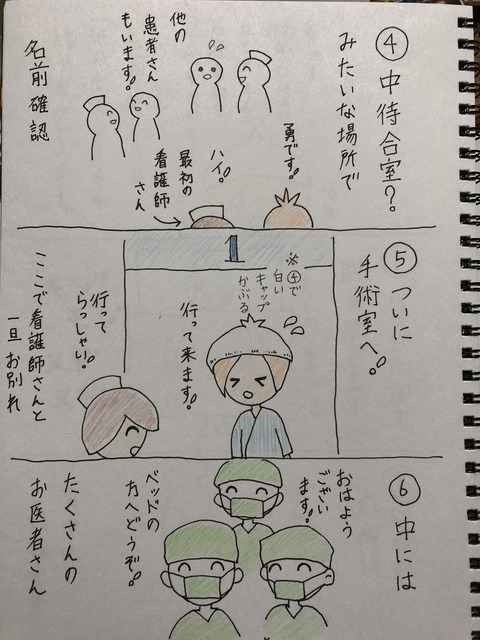 ④中待合室?
みたいな場所で
勇です。
ハイ。
最初の
看護師
さん
他の
患者さん
もいます。
名前確認
⑤ついに
手術室へ。
1
※④で
白い
キャップ
かぶる
行って来ます。
行って
らっしゃい。
ここで看護師さんと
一旦お別れ
⑥中には
おはよう
ござい
ます。
ベッドの
方へどうぞ。
たくさんの
お医者さん